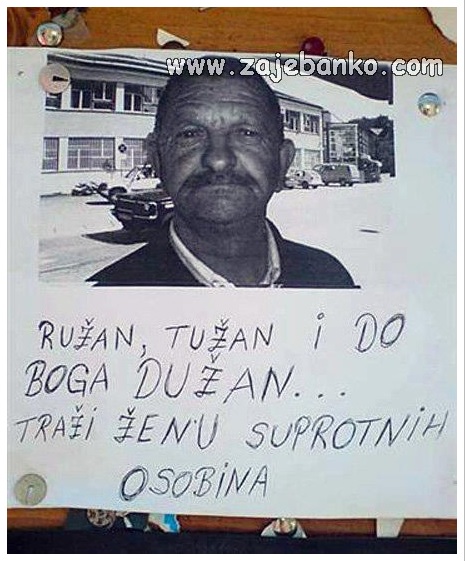 www.zajebanko.com
RUŽAN, TUŽAN I DO
BOGA DUŽAN...
TRAŽI ŽENU SUPROTNIH
OSOBINA